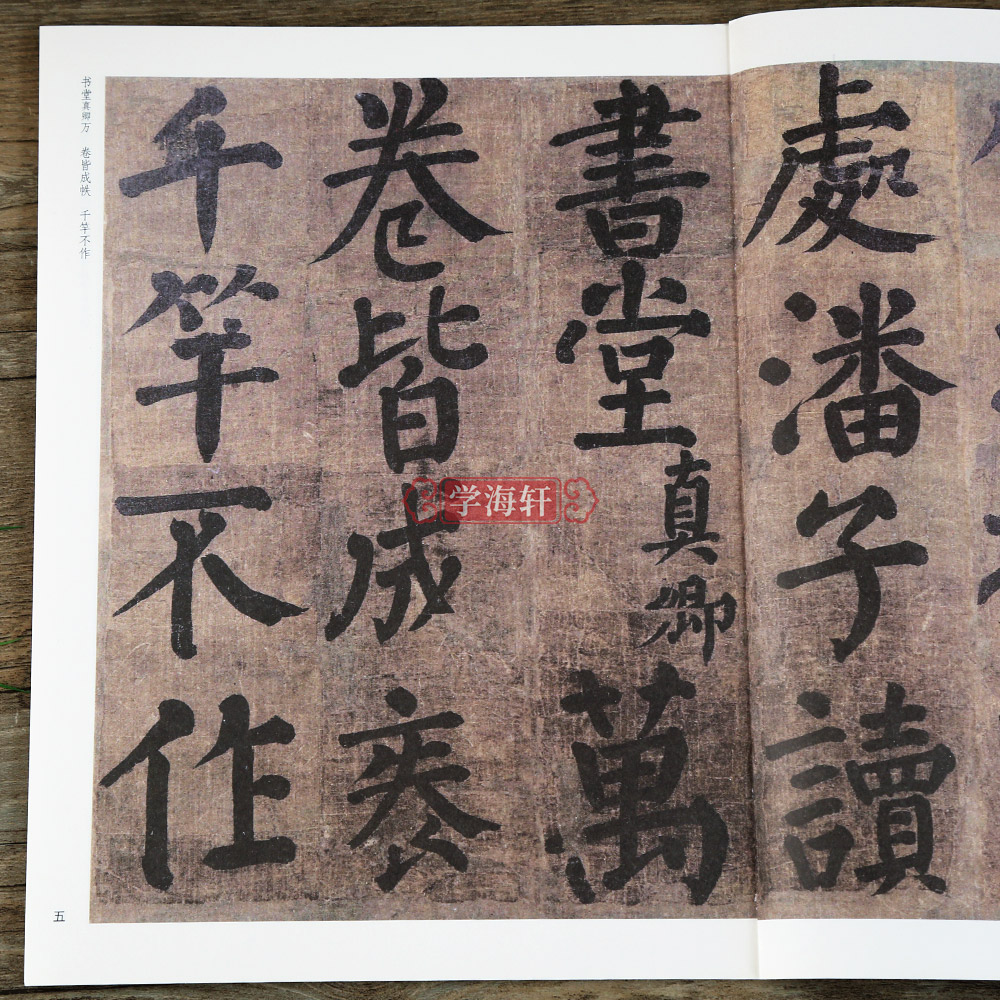 處潘子讀
書堂真卿萬
卷皆成袠
千竿不作
书堂真卿万　卷皆成帙　千竿不作
五
学海轩